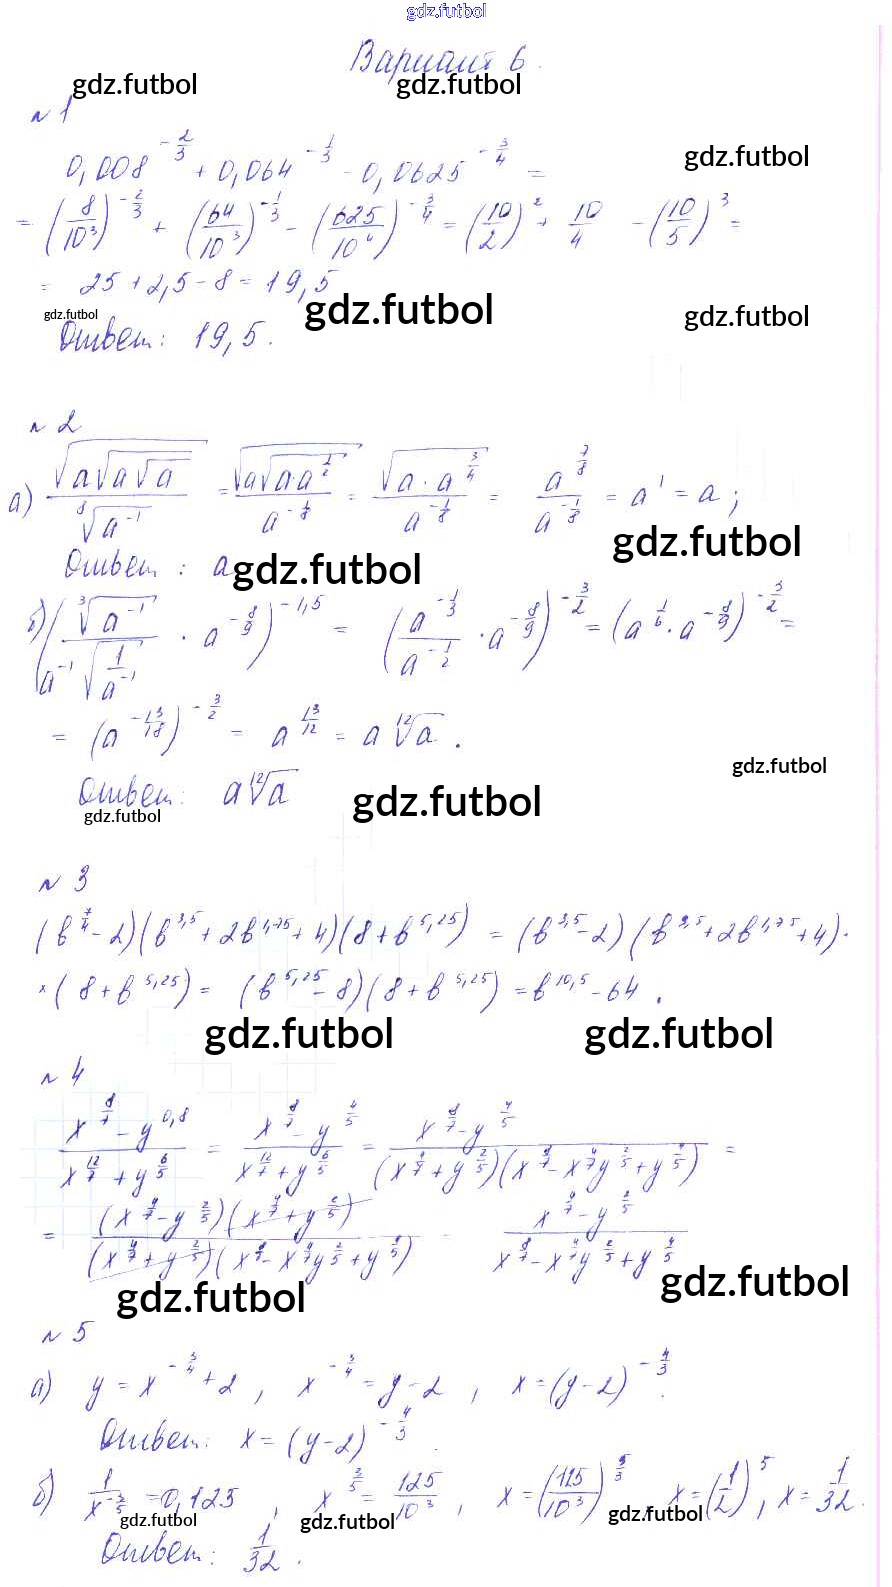 gdz.futbol
Вариант 6.
gdz.futbol gdz.futbol
№ 1
0,008^(-2/3) + 0,064^(-1/3) - 0,0625^(-3/4) =
gdz.futbol
= (8/10^3)^(-2/3) + (64/10^3)^(-1/3) - (625/10^4)^(-3/4) = (10/2)^2 + 10/4 - (10/5)^3 =
= 25 + 2,5 - 8 = 19,5
gdz.futbol gdz.futbol gdz.futbol
Ответ: 19,5.
№ 2
а) √(a√(a√a)) / ⁸√(a^(-1)) = √(a√(a·a^(1/2))) / a^(-1/8) = √(a·a^(3/4)) / a^(-1/8) = a^(7/8) / a^(-1/8) = a^1 = a;
gdz.futbol
Ответ: a
gdz.futbol
б) (³√(a^(-1)) / (a^(-1)√(1/a^(-1))) · a^(-8/9))^(-1,5) = (a^(-1/3) / a^(-1/2) · a^(-8/9))^(-3/2) = (a^(1/6) · a^(-8/9))^(-3/2) =
= (a^(-13/18))^(-3/2) = a^(13/12) = a ¹²√a.
gdz.futbol
Ответ: a¹²√a
gdz.futbol gdz.futbol
№ 3
(b^(7/4) - 2)(b^(3,5) + 2b^(1,75) + 4)(8 + b^(5,25)) = (b^(3,5) - 2)(b^(3,5) + 2b^(1,75) + 4)·
×(8 + b^(5,25)) = (b^(5,25) - 8)(8 + b^(5,25)) = b^(10,5) - 64.
gdz.futbol gdz.futbol
№ 4
(x^(8/7) - y^(0,8)) / (x^(12/7) + y^(6/5)) = (x^(8/7) - y^(4/5)) / (x^(12/7) + y^(6/5)) = (x^(8/7) - y^(4/5)) / ((x^(4/7) + y^(2/5))(x^(8/7) - x^(4/7)y^(2/5) + y^(4/5))) =
= ((x^(4/7) - y^(2/5))(x^(4/7) + y^(2/5))) / ((x^(4/7) + y^(2/5))(x^(8/7) - x^(4/7)y^(2/5) + y^(4/5))) - (x^(4/7) - y^(2/5)) / (x^(8/7) - x^(4/7)y^(2/5) + y^(4/5))
gdz.futbol gdz.futbol
№ 5
а) y = x^(-3/4) + 2, x^(-3/4) = y - 2, x = (y-2)^(-4/3).
Ответ: x = (y-2)^(-4/3).
б) 1/x^(-3/5) = 0,125, x^(3/5) = 125/10^3, x = (125/10^3)^(5/3), x = (1/2)^5, x = 1/32.
gdz.futbol gdz.futbol gdz.futbol
Ответ: 1/32.